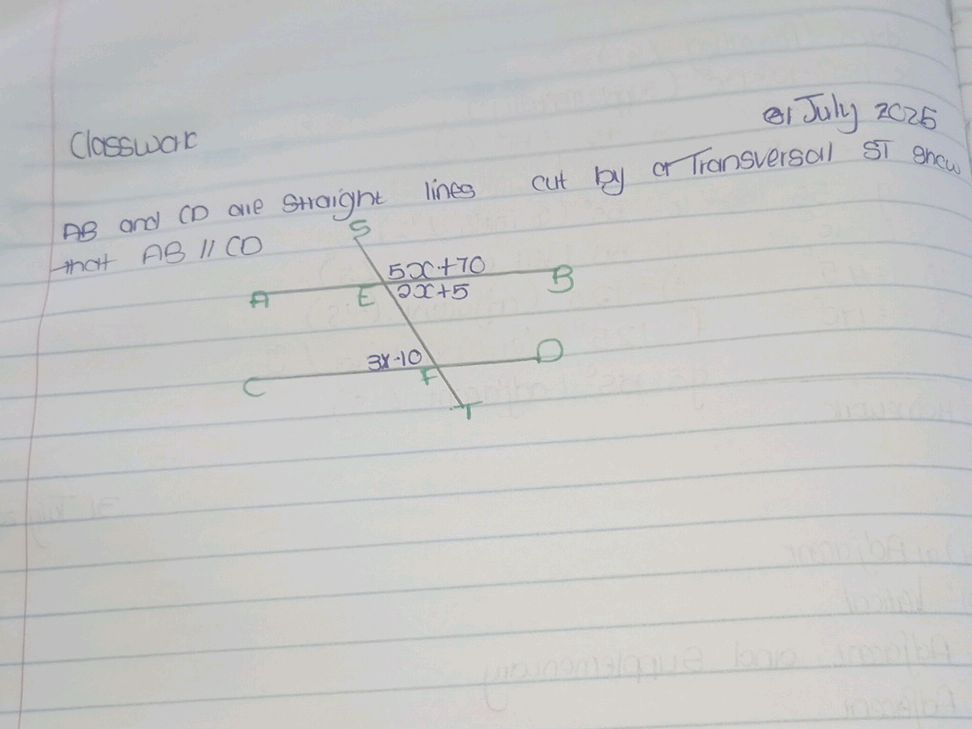 Classwork
31 July 2025
AB and CD are straight lines cut by a Transversal ST show
that AB // CD
S
5x+70
A E 2x+5 B
3x-10 D
C F
T